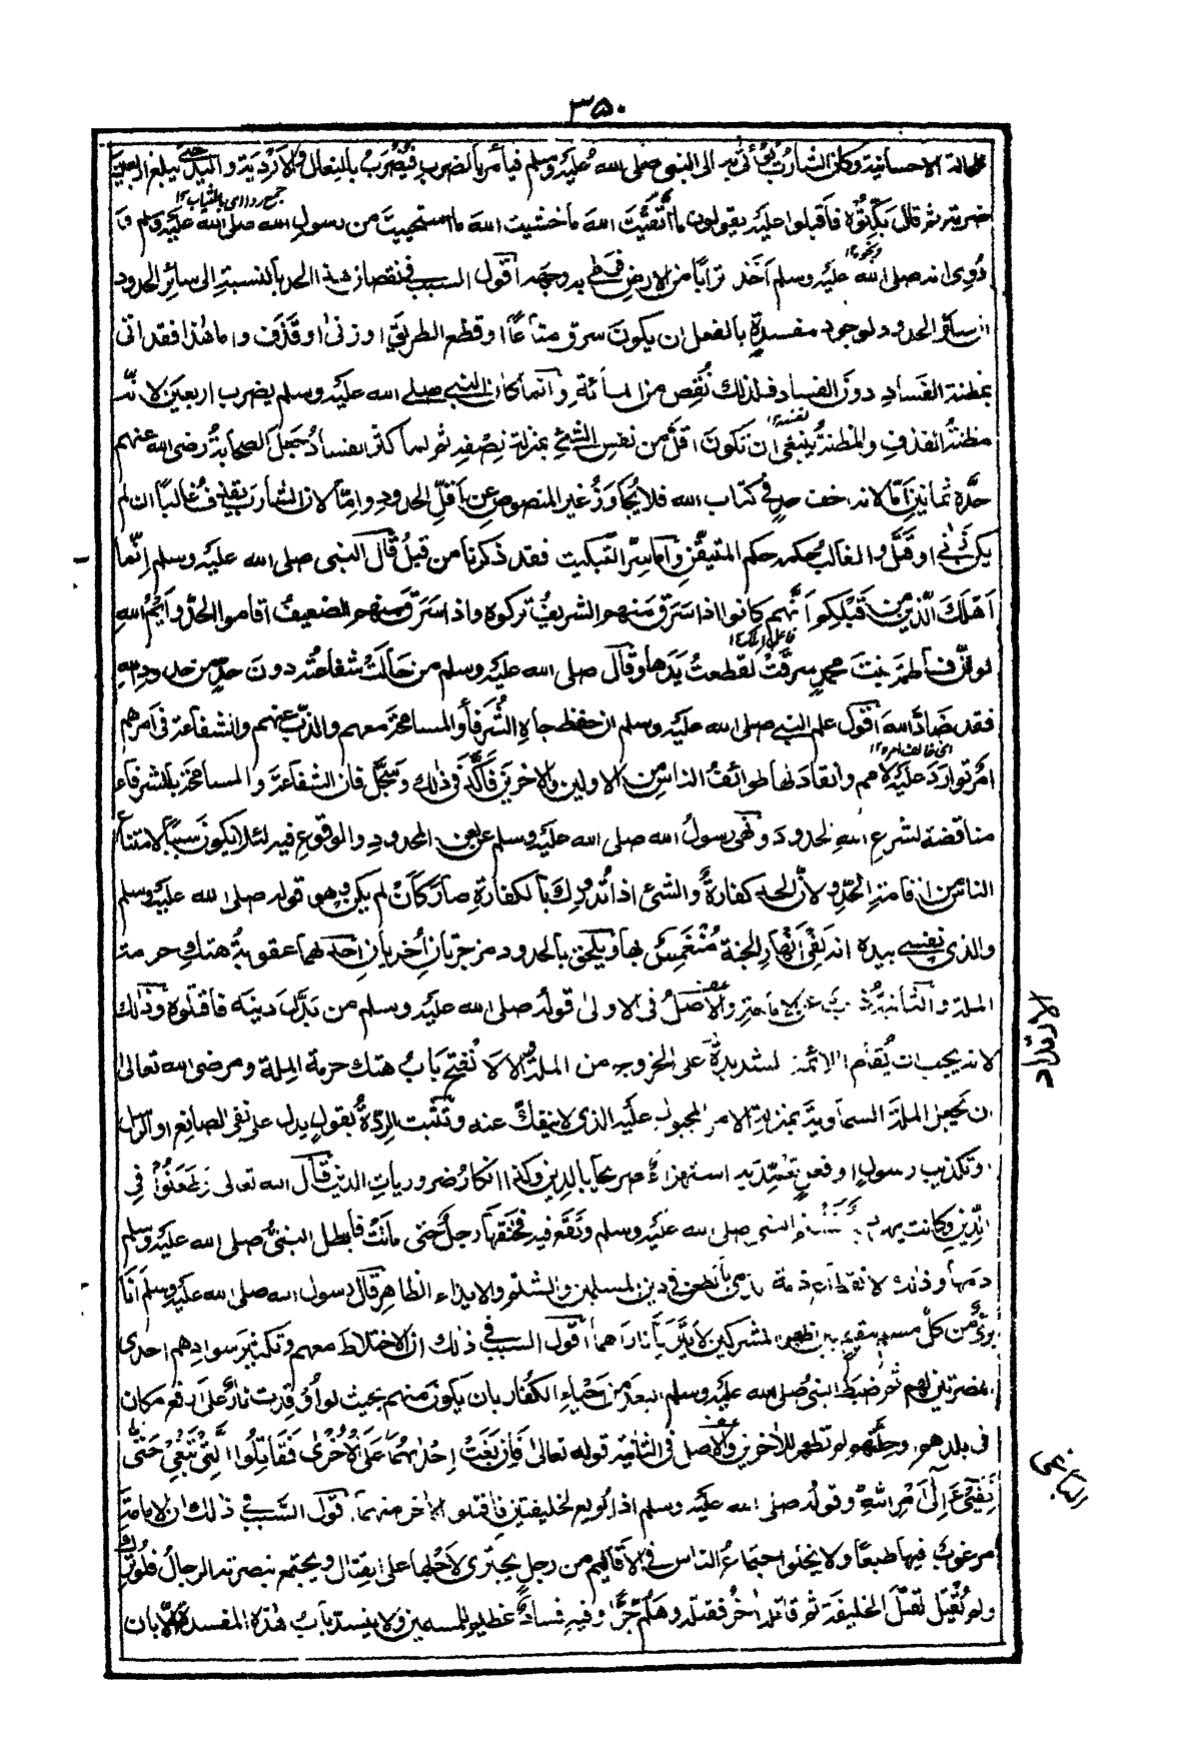 ۳۵۰
الحالة الاحسانية وكان الشارب يؤتى به الى النبي صلى الله عليه وسلم فيأمر بالضرب فيضرب بالنعال والاردية واليد حتى يبلغ اربعين
جمع ردا اى بالثياب ١٢
ضربة ثم قال بكتوه فاقبلوا عليه يقولون ما اتقيت الله ما خشيت الله ما استحييت من رسول الله صلى الله عليه وسلم و
روى انه صلى الله عليه وسلم اخذ ترابا من الارض فرمى به وجهه اقول السبب فى نقصان هذا الحد بالنسبة الى سائر الحدود
ان سائر الحدود لوجود مفسدة بالفعل ان يكون سرق متاعا او قطع الطريق او زنى او قذف واما هذا فقد اتى
بمظنة الفساد دون الفساد فلذلك نقص من المائة وانما كان النبي صلى الله عليه وسلم يضرب اربعين لانه
مظنة القذف والمظنة ينبغى ان تكون اقل من نفس الشئ بمنزلة نصفه ثم لما كثر الفساد جعل الصحابة رضى الله عنهم
حده ثمانين اما لانه اخف حد فى كتاب الله فلا يجاوز غير المنصوص عن اقل الحدود واما لان الشارب يقذف غالبا ان لم
يكن زنى او قتل والغالب حكمه حكم المتيقن واما سر التبكيت فقد ذكرنا من قبل قال النبى صلى الله عليه وسلم انما
اهلك الذين من قبلكم انهم كانوا اذا سرق منهم الشريف تركوه واذا سرق منهم الضعيف اقاموا الحد وايم الله
لو ان فاطمة بنت محمد سرقت لقطعت يدها وقال صلى الله عليه وسلم من حالت شفاعته دون حد من حدود الله
فقد ضاد الله اقول علم النبي صلى الله عليه وسلم ان حفظ جاه الشرفاء والمسامحة معهم والذب عنهم والشفاعة فى امرهم
امر توارد عليه الامم وانقاد لها طوائف الناس من الاولين والاخرين فاكد فى ذلك وسجل فان الشفاعة والمسامحة بالشرفاء
مناقضة لشرع الله الحدود ونهى رسول الله صلى الله عليه وسلم عن لعن المحدود والوقوع فيه لئلا يكون سببا لامتناع
الناس من اقامة الحد ولان الحد كفارة والشئ اذا تدورك بالكفارة صار كان لم يكن وهو قوله صلى الله عليه وسلم
والذى نفسى بيده انه لفى انهار الجنة منغمس بها ويلحق بالحدود مزجرتان اخريان احدهما عقوبة هتك حرمة
الملة والثانية الذب عن الامامة والاصل فى الاولى قوله صلى الله عليه وسلم من بدل دينه فاقتلوه وذلك
الارتداد
لانه يجب ان يقام اللائمة الشديدة على الخروج من الملة والا لانفتح باب هتك حرمة الملة ومرضى الله تعالى
ان تجعل الملة السماوية بمنزلة الامر المجبول عليه الذى لا ينفك عنه وتثبت الردة بقول يدل على نفى الصانع او الرسل
او تكذيب رسول او فعل تعمد به استهزاء صريحا بالدين وكذا انكار ضروريات الدين قال الله تعالى وطعنوا فى
الدين وكانت يهودية تشتم النبى صلى الله عليه وسلم وتقع فيه فخنقها رجل حتى ماتت فابطل النبى صلى الله عليه وسلم
دمها وذلك لانقطاع ذمة الذمى بالطعن فى دين المسلمين والشتم والايذاء الظاهر قال رسول الله صلى الله عليه وسلم انا
برئ من كل مسلم مقيم بين اظهر المشركين لا يترايا ناراهما اقول السبب فى ذلك ان الاختلاط معهم وتكثير سوادهم احدى
النصرتين لهم ثم ضبط النبى صلى الله عليه وسلم البعد من احياء الكفار بان يكون منهم بحيث لو اوقدت نار على ارفع مكان
فى بلدهم وحلتهم لم تظهر للاخرين والاصل فى الثانية قوله تعالى فان بغت احداهما على الاخرى فقاتلوا التى تبغى حتى
تفيء الى امر الله وقوله صلى الله عليه وسلم اذا بويع لخليفتين فاقتلوا الاخر منهما اقول السبب فى ذلك ان الامامة
الباغى
مرغوب فيها طبعا ولا يخلو اجتماع الناس فى الاقاليم من رجل يجترى لاجلها على القتال ويجتمع لنصرته الرجال فلو ترك
ولم يقتل لقتل الخليفة ثم قاتله اخر فقتله وهلم جرا وفيه فساد عظيم للمسلمين ولا ينسد باب هذه المفسدة الا بان